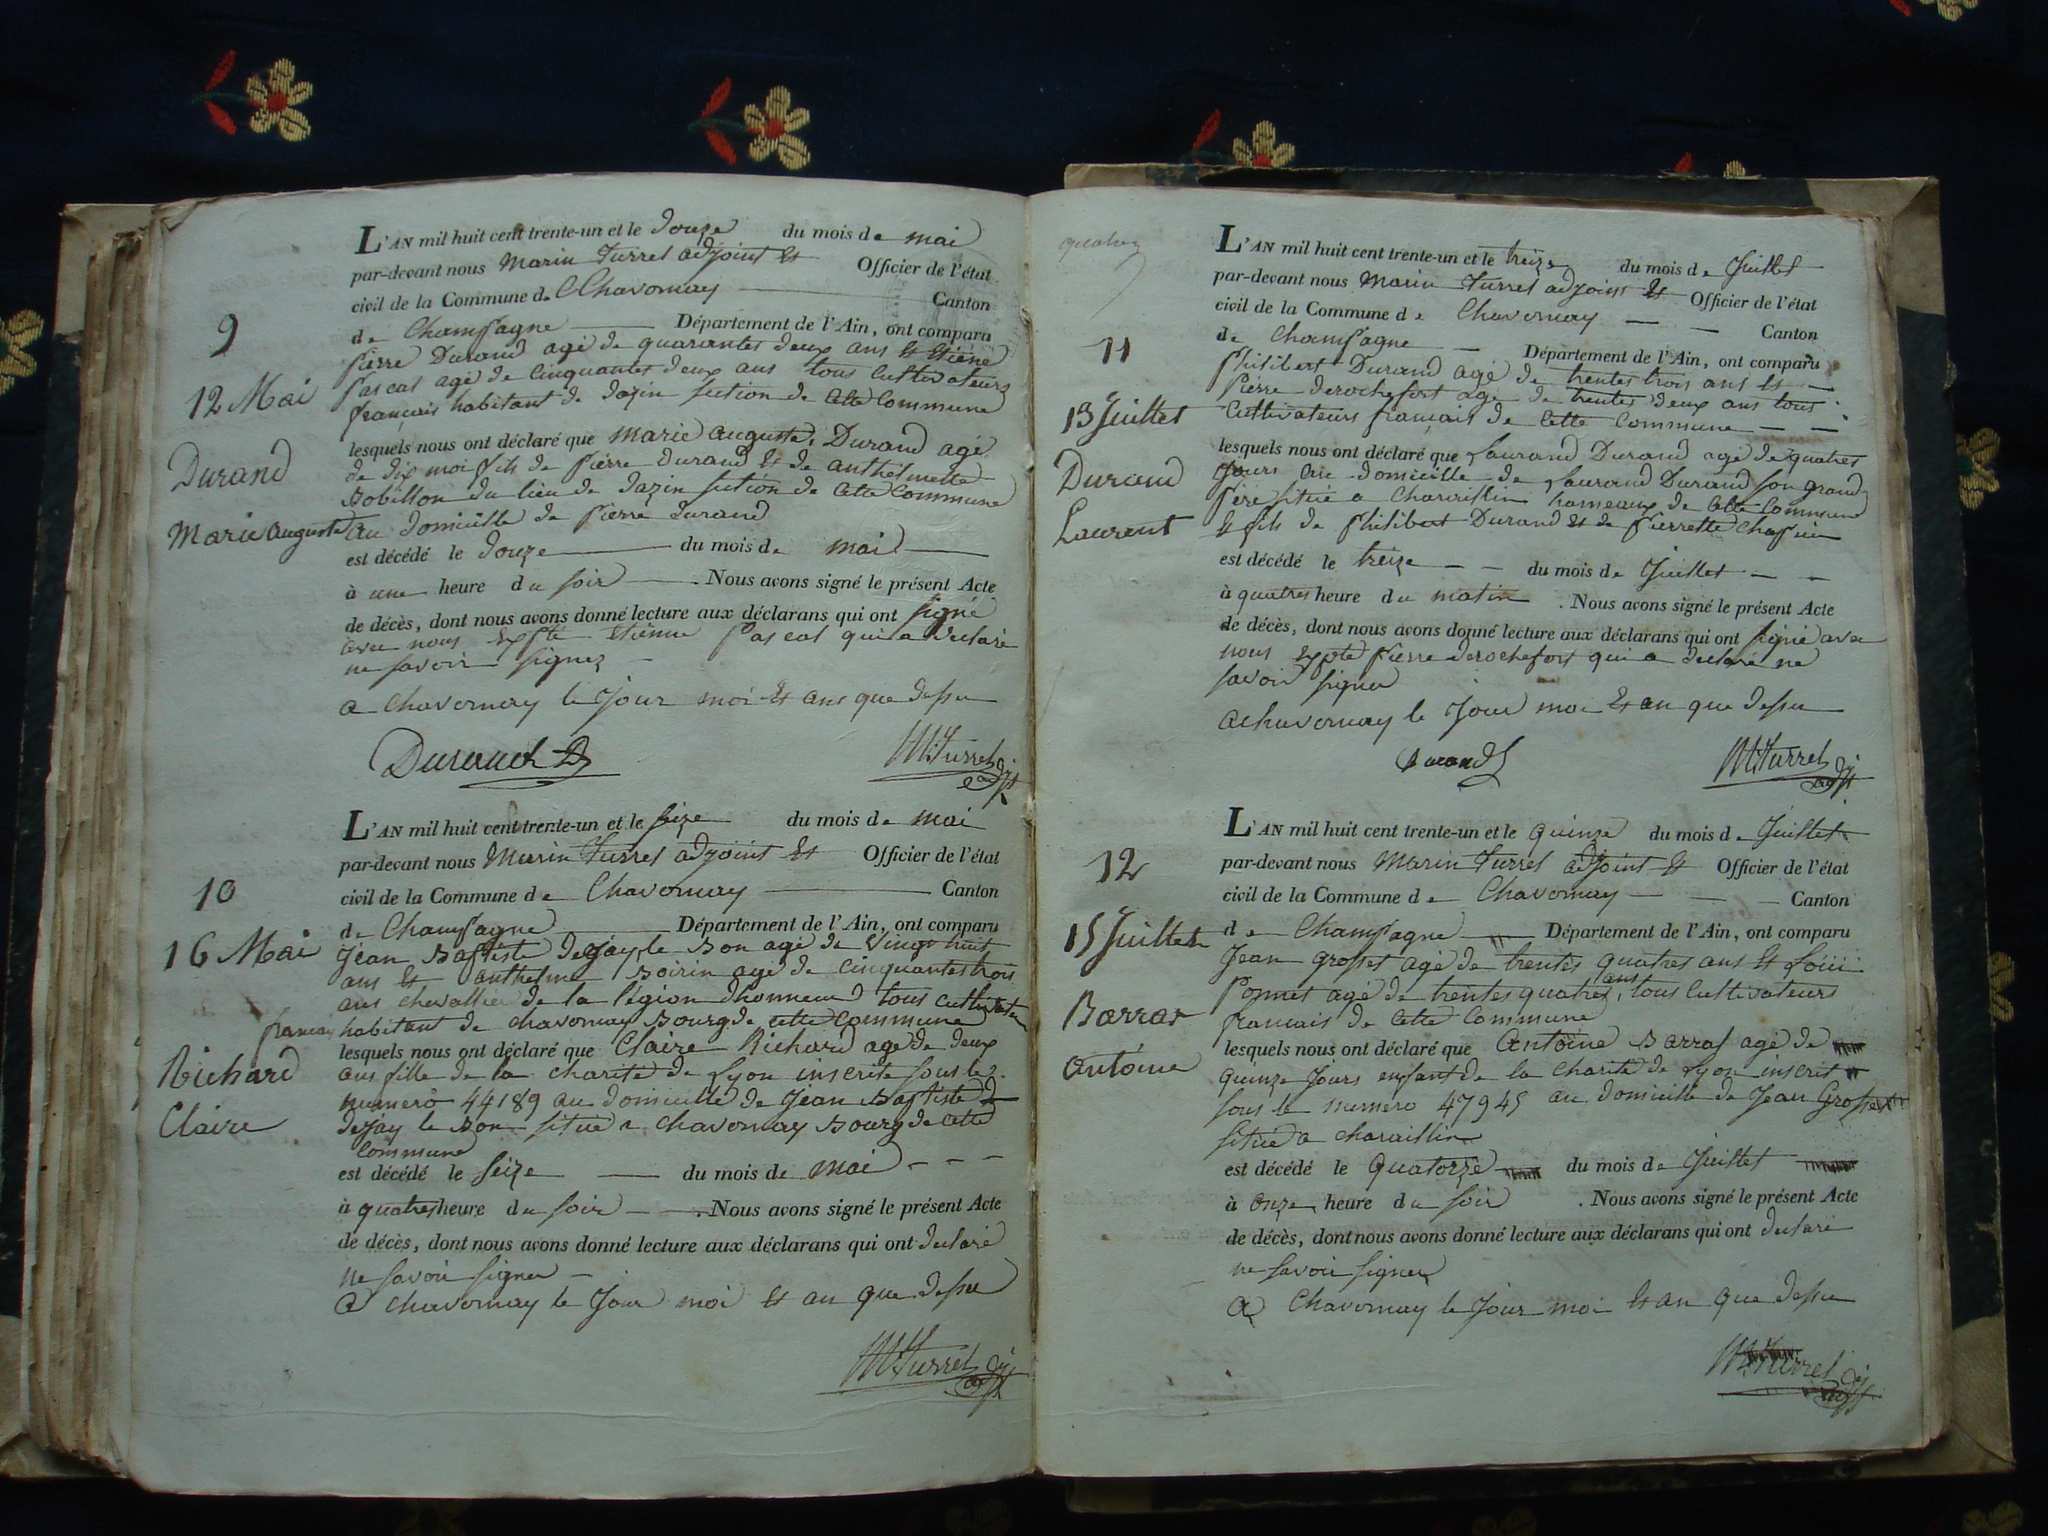 L'AN mil huit cent trente-un et le douze du mois de mai
par-devant nous Marin Turrel adjoint et Officier de l'état
civil de la Commune de Chavornay Canton
de Champagne Département de l'Ain, ont comparu
9
Pierre Durand agé de quarantes deux ans et Etiene
Pascal agé de Cinquantes deux ans tous Cultivateurs
12 Mai
français habitant de dazin section de Cette Commune
lesquels nous ont déclaré que Marie Auguste, Durand agé
Durand
de dix moi fils de Pierre Durand et de anthelmette
Bobillon du lieu de dazin section de Cette Commune
Marie Auguste
au domicille de Pierre durand
est décédé le douze du mois de mai
à une heure du soir . Nous avons signé le présent Acte
de décès, dont nous avons donné lecture aux déclarans qui ont signé
avec nous Etienne Pascal qui a declaré
ne savoir signez
a Chavornay le Jour moi et ans que dessu
Durand
M. Turrel adjt
L'AN mil huit cent trente-un et le seize du mois de mai
par-devant nous Marin Turrel adjoint et Officier de l'état
civil de la Commune de Chavornay Canton
10
de Champagne Département de l'Ain, ont comparu
16 Mai
Jean Baptiste dejay le Bon agé de vingt huit
ans et anthelme Boirin agé de Cinquantes trois
ans chevallier de la légion dhonneur tous cultivateur
francai habitant de chavornay Bourg de cette Commune
lesquels nous ont déclaré que Claire Richard agé de deux
Richard
ans fille de la charité de Lyon inscrite sous le
numero 44189 au domicille de Jean Baptiste
Claire
dejay le Bon situé a Chavornay Bourg de Cette
Commune
est décédé le seize du mois de mai
à quatres heure du soir . Nous avons signé le présent Acte
de décès, dont nous avons donné lecture aux déclarans qui ont declaré
ne savoir signer
a chavornay le Jour moi et an que dessu
M. Turrel adjt
L'AN mil huit cent trente-un et le treize du mois de Juillet
par-devant nous Marin Turrel adjoint et Officier de l'état
civil de la Commune de Chavornay Canton
de Champagne Département de l'Ain, ont comparu
11
Philibert Durand agé de trentes trois ans et
Pierre derochefort agé de trentes deux ans tous
13 Juillet
Cultivateurs français de Cette Commune
lesquels nous ont déclaré que Laurand Durand agé de quatres
Durand
Jours au domicille de Laurand Durand son grand
père situé a Charvillin hameaux de Cette Commune
Laurent
et fils de Philibert Durand et de Pierrette Chapuin
est décédé le treize du mois de Juillet
à quatres heure du matin . Nous avons signé le présent Acte
de décès, dont nous avons donné lecture aux déclarans qui ont signé avec
nous Pierre derochefort qui a declaré ne
savoir signer
a chavornay le Jour moi et an que dessu
Durand
M. Turrel adjt
L'AN mil huit cent trente-un et le quinze du mois de Juillet
par-devant nous Marin Turrel adjoint et Officier de l'état
12
civil de la Commune de Chavornay Canton
15 Juillet
de Champagne Département de l'Ain, ont comparu
Jean Grosset agé de trentes quatres ans et Loüii
ans
Ponnet agé de trentes quatres, tous Cultivateurs
Barras
francais de Cette Commune
lesquels nous ont déclaré que Antoine Barras agé de
Antoine
quinze Jours enfant de la charité de Lyon inscrit
sous le numero 47945 au domicille de Jean Grosset
situé a charaillin
est décédé le quatorze du mois de Juillet
à onze heure du soir . Nous avons signé le présent Acte
de décès, dont nous avons donné lecture aux déclarans qui ont declaré
ne savoir signer
a Chavornay le Jour moi et an que dessu
M. Turrel adjt